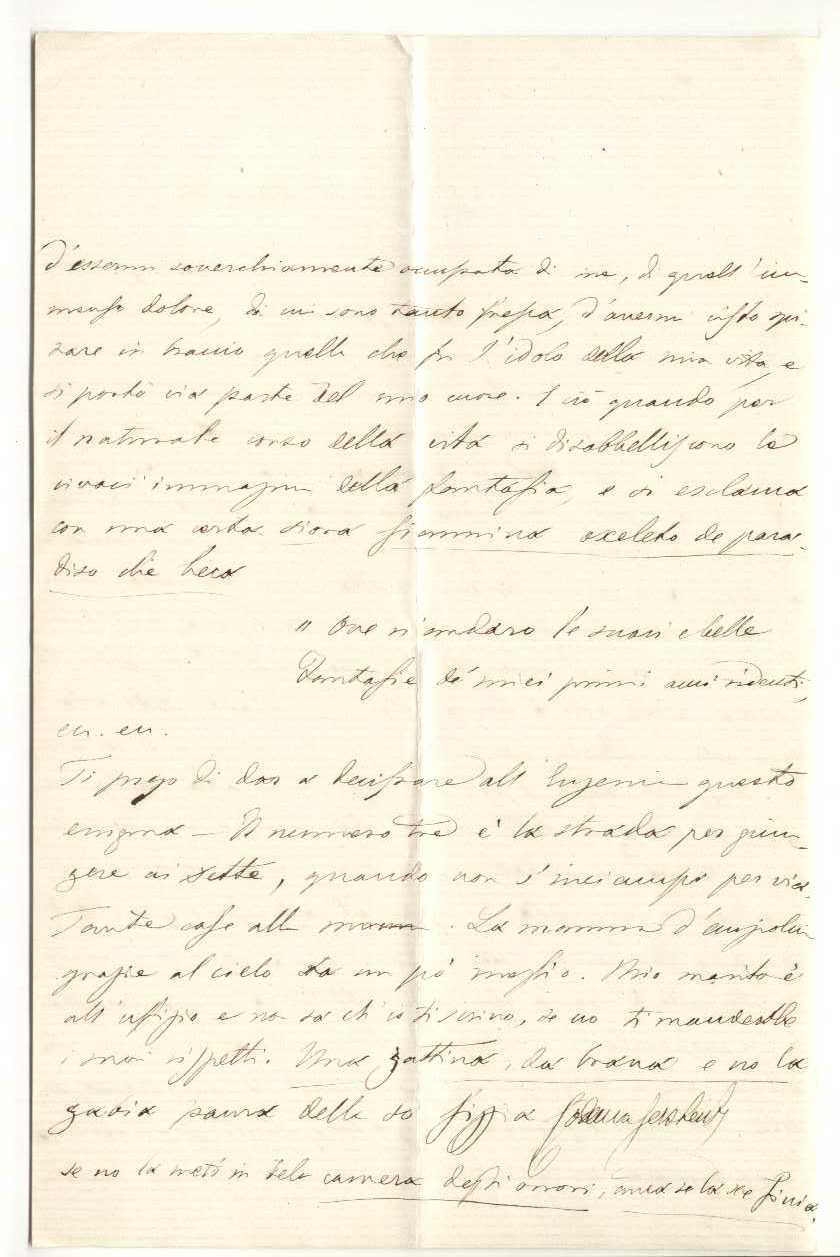 d'essermi soverchiamente occupata di me, di quell'im-
menso dolore, di cui sono tanto presa, d'avermi visto spi-
rare in braccio quella che fu l'idolo della mia vita, e
si portò via parte del mio cuore. E ciò quando per
il naturale corso della vita si disabbelliscono le
vivaci immagini della fantasia, e si esclama
con una certa siora Giannina oxeleto de para-
diso che hera
" Ove n'andaro le soavi e belle
Fantasie de' miei primi anni ridenti,
ecc. ecc.
Ti prego di dar a decifrare all' Eugenia questo
enigma — Il numero tre è la strada per giun-
gere ai sette, quando non s'inciampi per via.
Tante cose alla mamma. La mamma d'
grazie al cielo sta un pò meglio. Mio marito è
all' ufizio e non sa ch' io ti scrivo, se no ti manderebbe
i suoi rispetti. Una gattina, da brava e no la
gabia paura della so figgia
se no la metò in dela camera degli orrori, la xe finia.